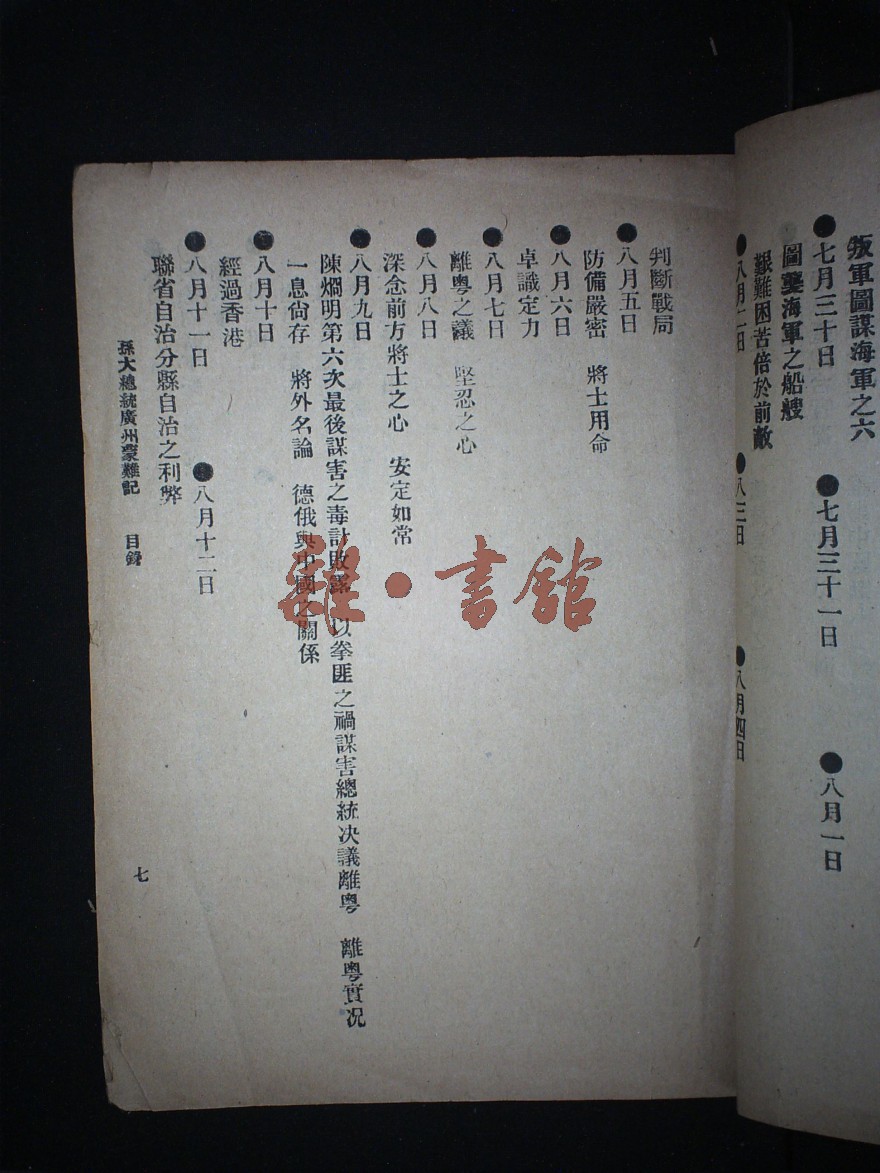 叛軍圖謀海軍之六
●七月三十日　●七月三十一日　●八月一日
圖襲海軍之船艘
艱難困苦倍於前敵
●八月二日　●八三日　●八月四日
判斷戰局
●八月五日
防備嚴密　將士用命
●八月六日
卓識定力
●八月七日
離粵之議　堅忍之心
●八月八日
深念前方將士之心　安定如常
●八月九日
陳烱明第六次最後謀害之毒計敗露　以拳匪之禍謀害總統決議離粵　離粵實况
一息尙存　將外名論　德俄與中國之關係
●八月十日
經過香港
●八月十一日　●八月十二日
聯省自治分縣自治之利弊
孫大總統廣州蒙難記　目錄
七
雜·書館